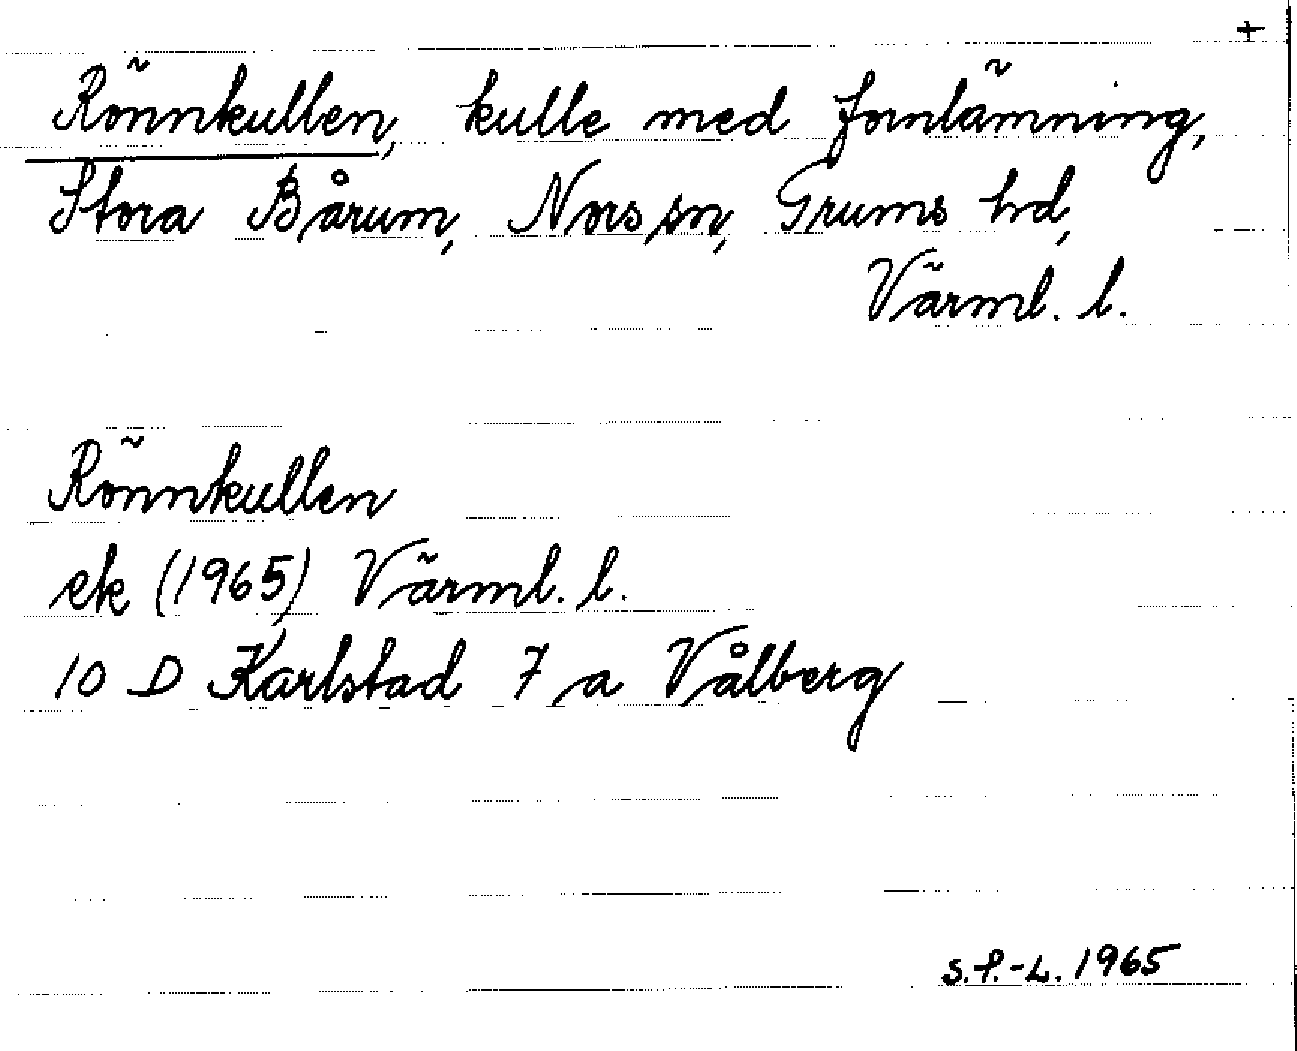 +
Rönnkullen, kulle med fornlämning,
Stora Bårum, Nors sn, Grums hd,
Värml. l.
Rönnkullen
ek (1965) Värml. l.
10 D Karlstad 7 a Vålberg
S.P.-L. 1965